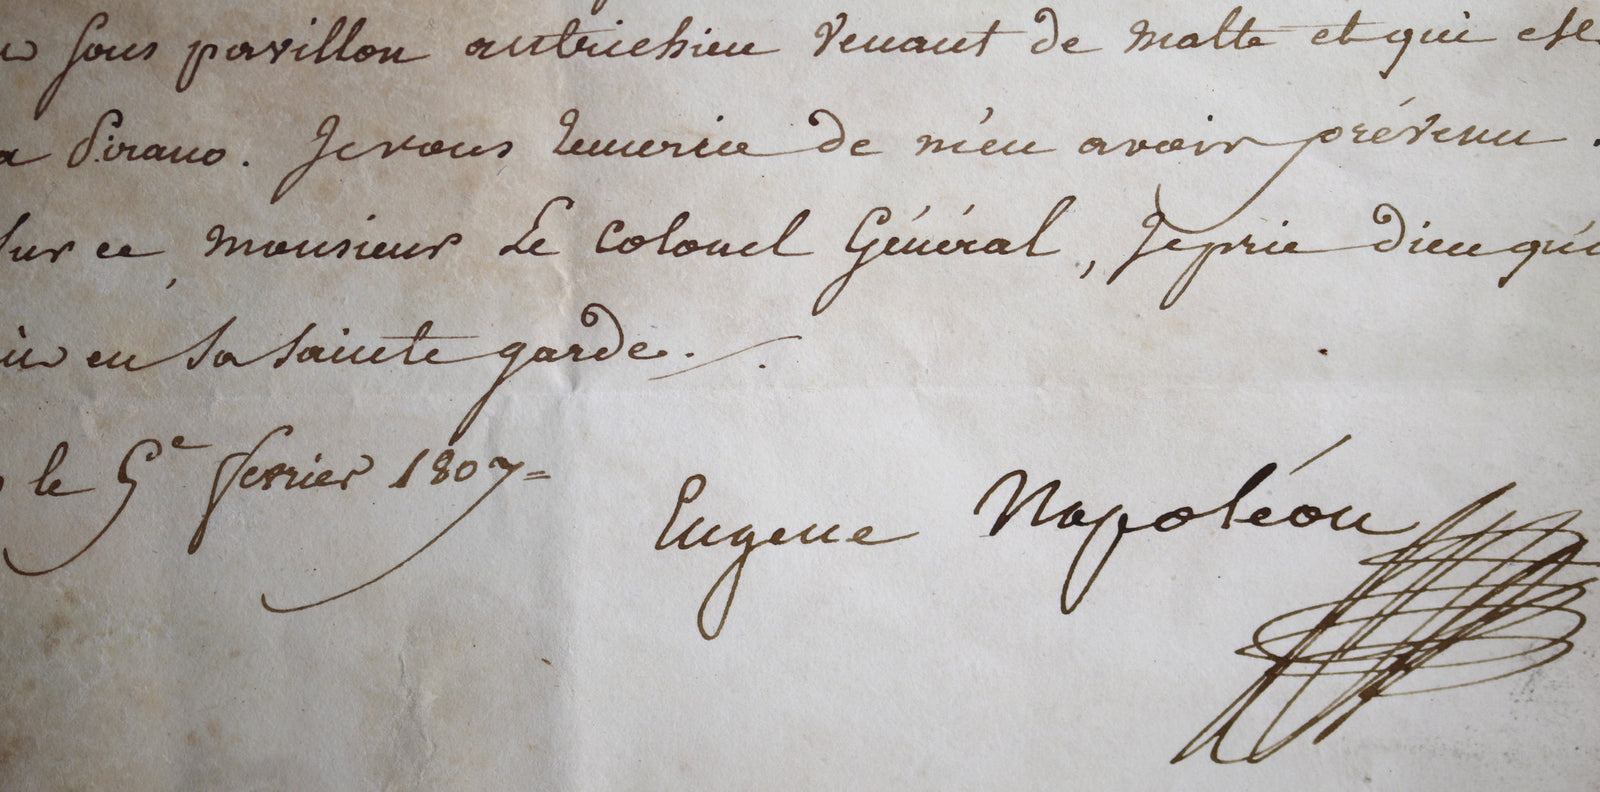 sous pavillon autrichien venant de Malte et qui est
a Pirano. Je vous remercie de m'en avoir prévenu.
Sur ce, monsieur Le Colonel Général, Je prie Dieu qu'i
en Sa Sainte garde.
le 5e fevrier 1807 =
Eugene Napoléon